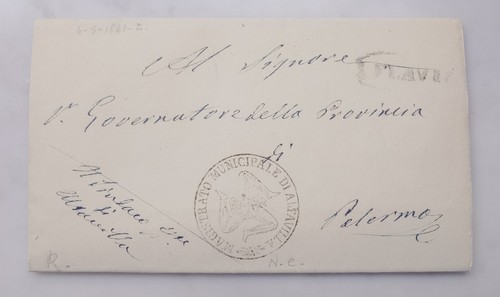 5-5-1861-
Al Signore
S. FLAVIA
Sr. Governatore della Provincia
di
Palermo
Il Sindaco
di
Altavilla
MAGISTRATO MUNICIPALE DI ALTAVILLA
R.
N.C.